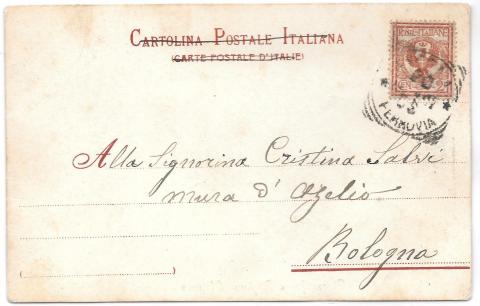 CARTOLINA POSTALE ITALIANA
(CARTE POSTALE D'ITALIE)
POSTE ITALIANE
FERROVIA
Alla Signorina Cristina Salvi
Mura d' Azelio
Bologna